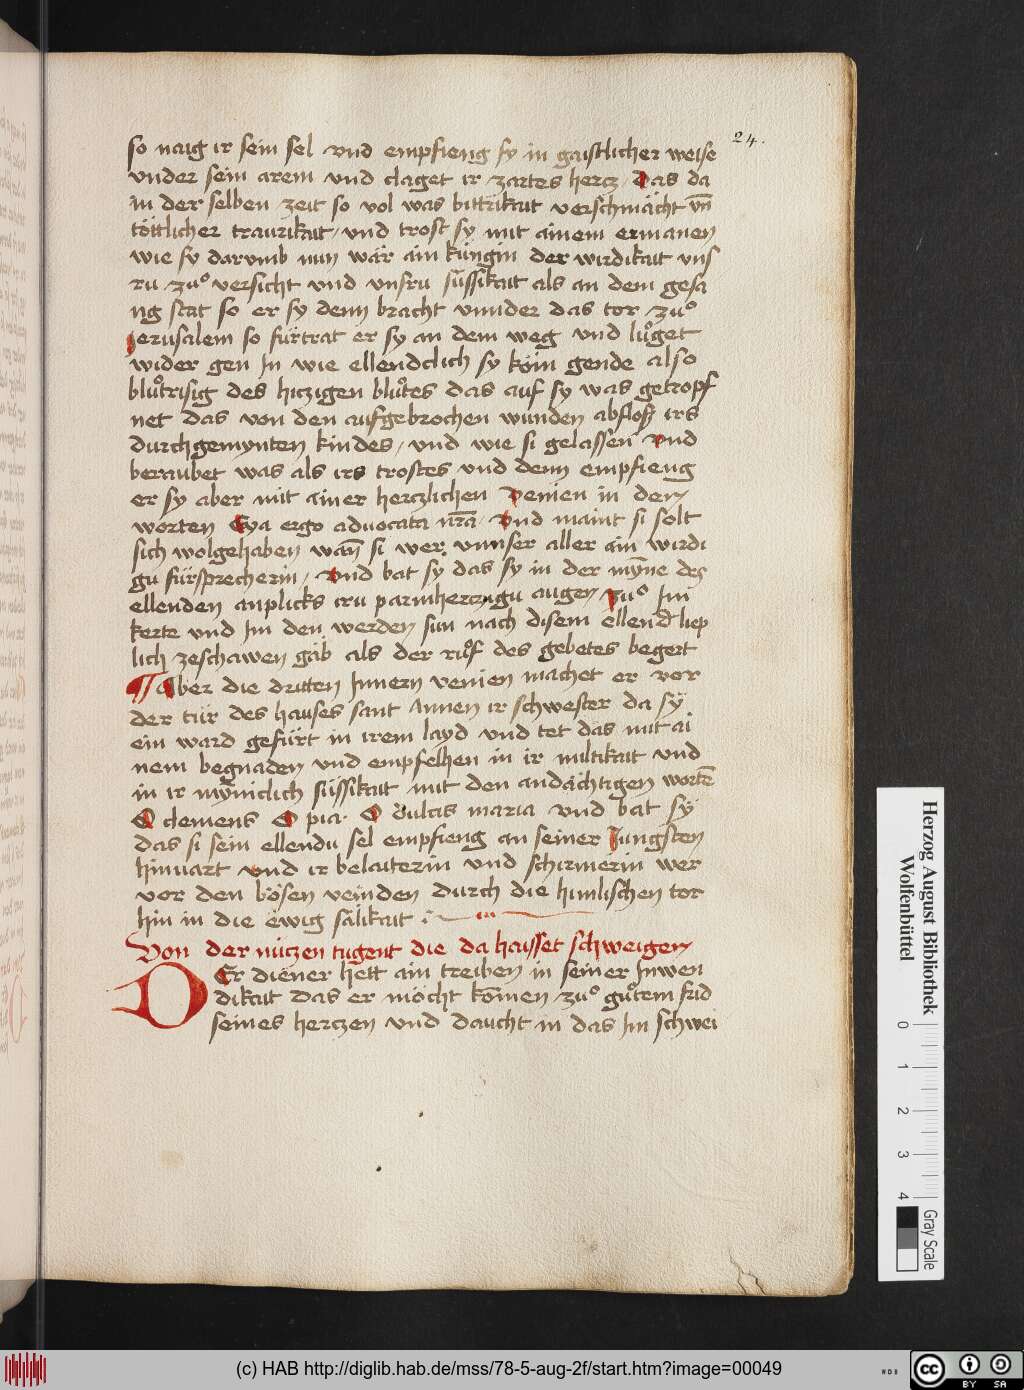 24.
so naig ir sein sel vnd empfieng sy in gaistlicher weise
vnder sein arem vnd claget ir zartes hercz / Das da
in der selben zeit so vol was bittrikait verschmächt vn̄
töttlicher traurikait / vnd trost sy mit ainem ermanen
wie sy darumb nun wär ain küngin der wirdikait vns
ru zuͦ versicht vnd vnsru süssikait als an dem gesa
ng stat so er sy denn bracht vnnder das tor zuͦ
jerusalem so fürtrat er sy an dem weg vnd luͦget
wider gen In wie ellendclich sy köm gende also
bluͦtrisig des hiczigen bluͦtes das auf sy was getropf
net das von den aufgebrochen wunden abfloß irs
durchgemynten kindes / vnd wie si gelassen vnd
beraubet was als irs trostes vnd denn empfieng
er sy aber mit ainer herczlichen venien in den
worten Eya ergo aduocata nr̄a / vnd maint si solt
sich wolgehaben wan̄ si wer vnnser aller ain wirdi
gu fürsprecherin / vnd bat sy das sy in der myn̄e des
ellenden anplicks iru parmherczigu augen zuͦ Im
kerte vnd Im den werden sun nach disem ellend liep
lich zeschawen gäb als der ruͦf des gebetes begert
Aber die dritten Innern venien machet er vor
der tür des hauses sant Annen ir schwester da sy
ein ward gefürt in irem layd vnd tet das mit ai
nem begnaden vnd empfelhen in ir miltikait vnd
in ir myniclich süssikait mit den andächtigen worten̄
O clemens O pia. O dulcis maria vnd bat sy
das si sein ellendu sel empfieng an seiner Jungsten
hinuart vnd ir belaiterin vnd schirmerin wer
vor den bösen veinden durch die himlischen tor
hin in die ewig sälikait
Von der nüczen tugent die da haisset schweigen
DEr diener hett ain treiben in seiner Inwen
dikait das er möcht komen zuͦ guͦtem frid
seines herczen vnd daucht in das Im schwei
Herzog August Bibliothek
Wolfenbüttel
0 1 2 3 4
Gray Scale
(c) HAB http://diglib.hab.de/mss/78-5-aug-2f/start.htm?image=00049
WDB
cc BY SA